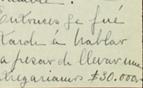 Entonces ge fué
tarde á hablar
a pesar de llevar una
$30.000.-